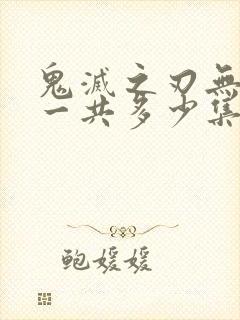 鬼滅之刃無
一共多少集
鲍媛媛